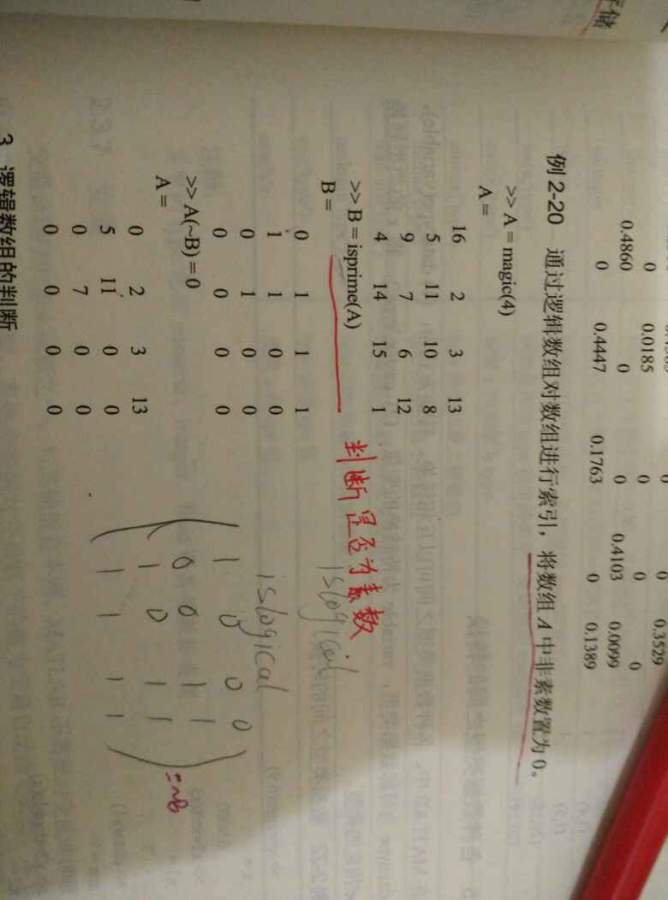 储
0.3529
0 0.0185 0 0 0
0.4860 0 0 0.4103 0.0099
0 0.4447 0.1763 0 0.1389
例 2-20 通过逻辑数组对数组进行索引，将数组 A 中非素数置为 0。
>> A = magic(4)
A =
16 2 3 13
5 11 10 8
9 7 6 12
4 14 15 1
>> B = isprime(A) 判断是否为素数
B = islogical
0 1 1 1
1 1 0 0 islogical
0 1 0 0
0 0 0 0
1 0 0 0
>> A(~B) = 0
0 0 1 1
A =
1 0 1 1
=~B
0 2 3 13
5 11 0 0
1 1 1 1
0 7 0 0
0 0 0 0
3 逻辑数组的判断